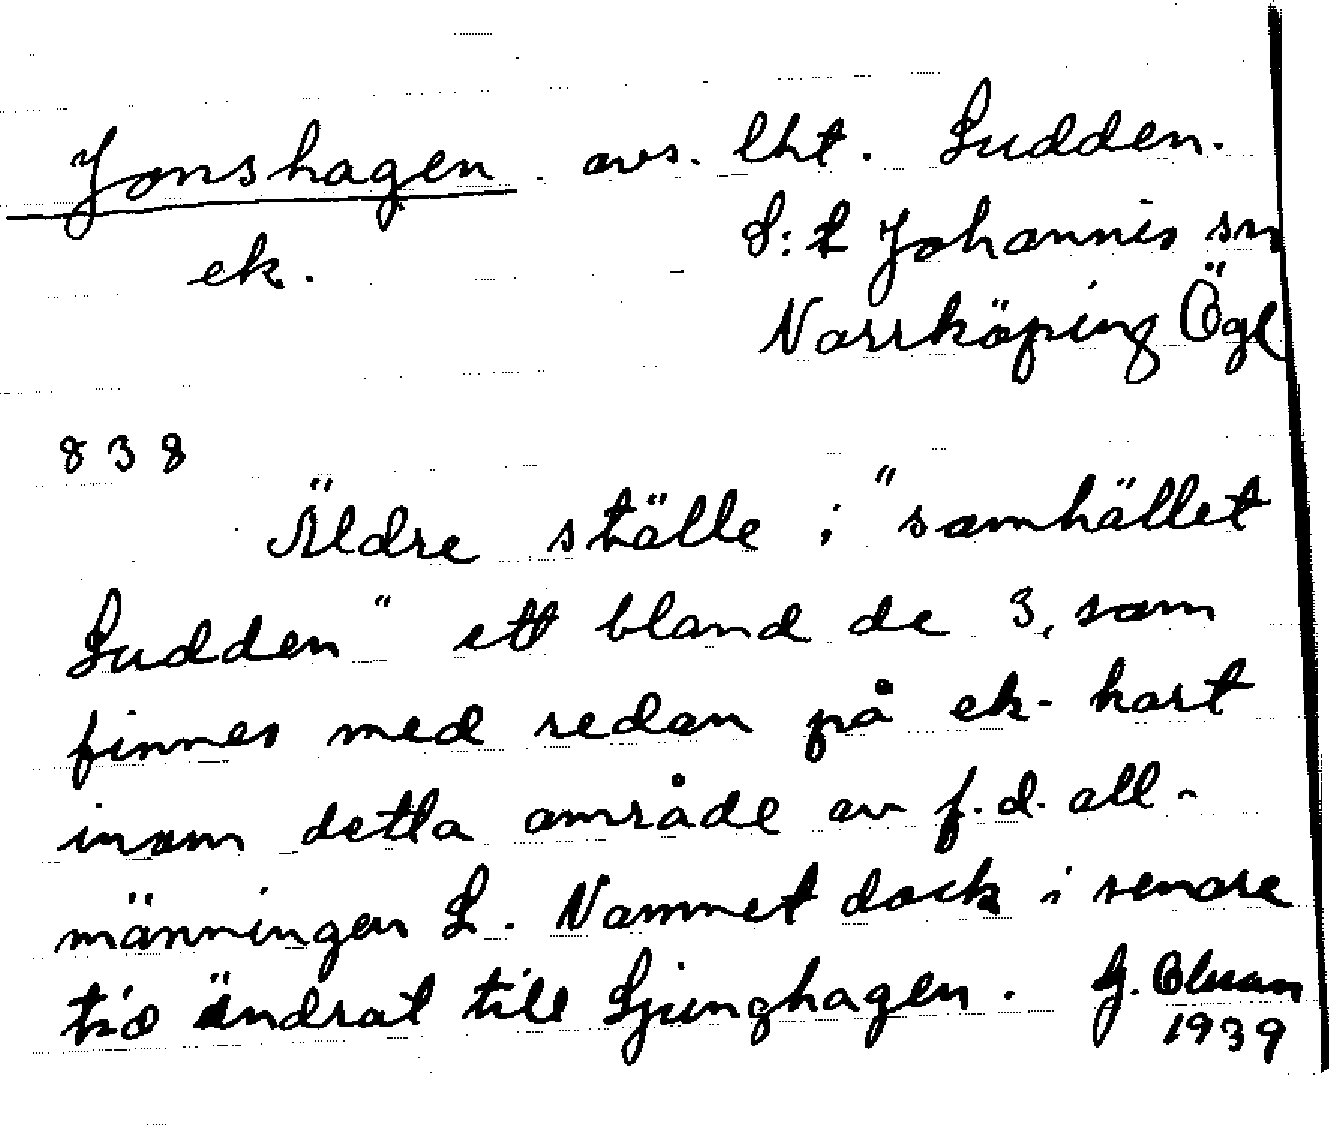 Jonshagen avs. lht. Ludden.
ek. S:t Johannis sn
Norrköping Ögl
838
Äldre ställe i "samhället
Ludden" ett bland de 3, som
finnes med redan på ek-kart
inom detta område av f.d. all-
männingen L. Namnet dock i senare
tid ändrat till Ljunghagen. G. Olsson
1939